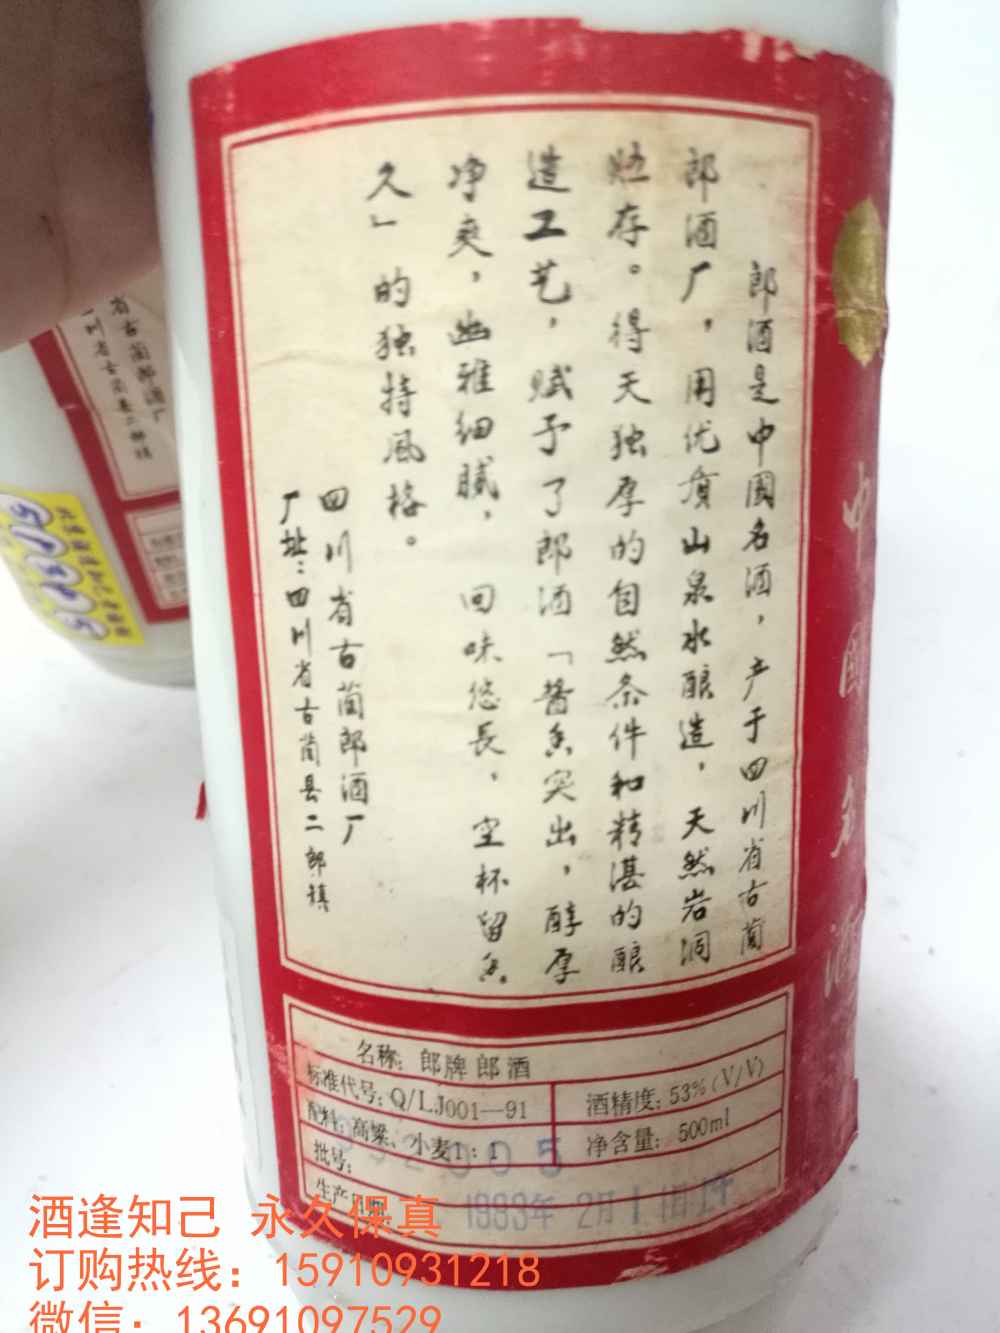 郎酒是中国名酒，产于四川省古蔺
郎酒厂，用优质山泉水酿造，天然岩洞
贮存。得天独厚的自然条件和精湛的酿
造工艺，赋予了郎酒「酱香突出，醇厚
净爽，幽雅细腻，回味悠長，空杯留香
久」的独特风格。
四川省古蔺郎酒厂
厂址：四川省古蔺县二郎镇
中国名酒
名称：郎牌郎酒
标准代号：Q/LJ001—91
酒精度：53%(V/V)
配料：高粱、小麦1：1
净含量：500ml
批号：
生产日期
2月1
省古蔺郎酒厂
川省古蔺县二郎镇
酒逢知己 永久保真
订购热线：15910931218
微信：13691097529